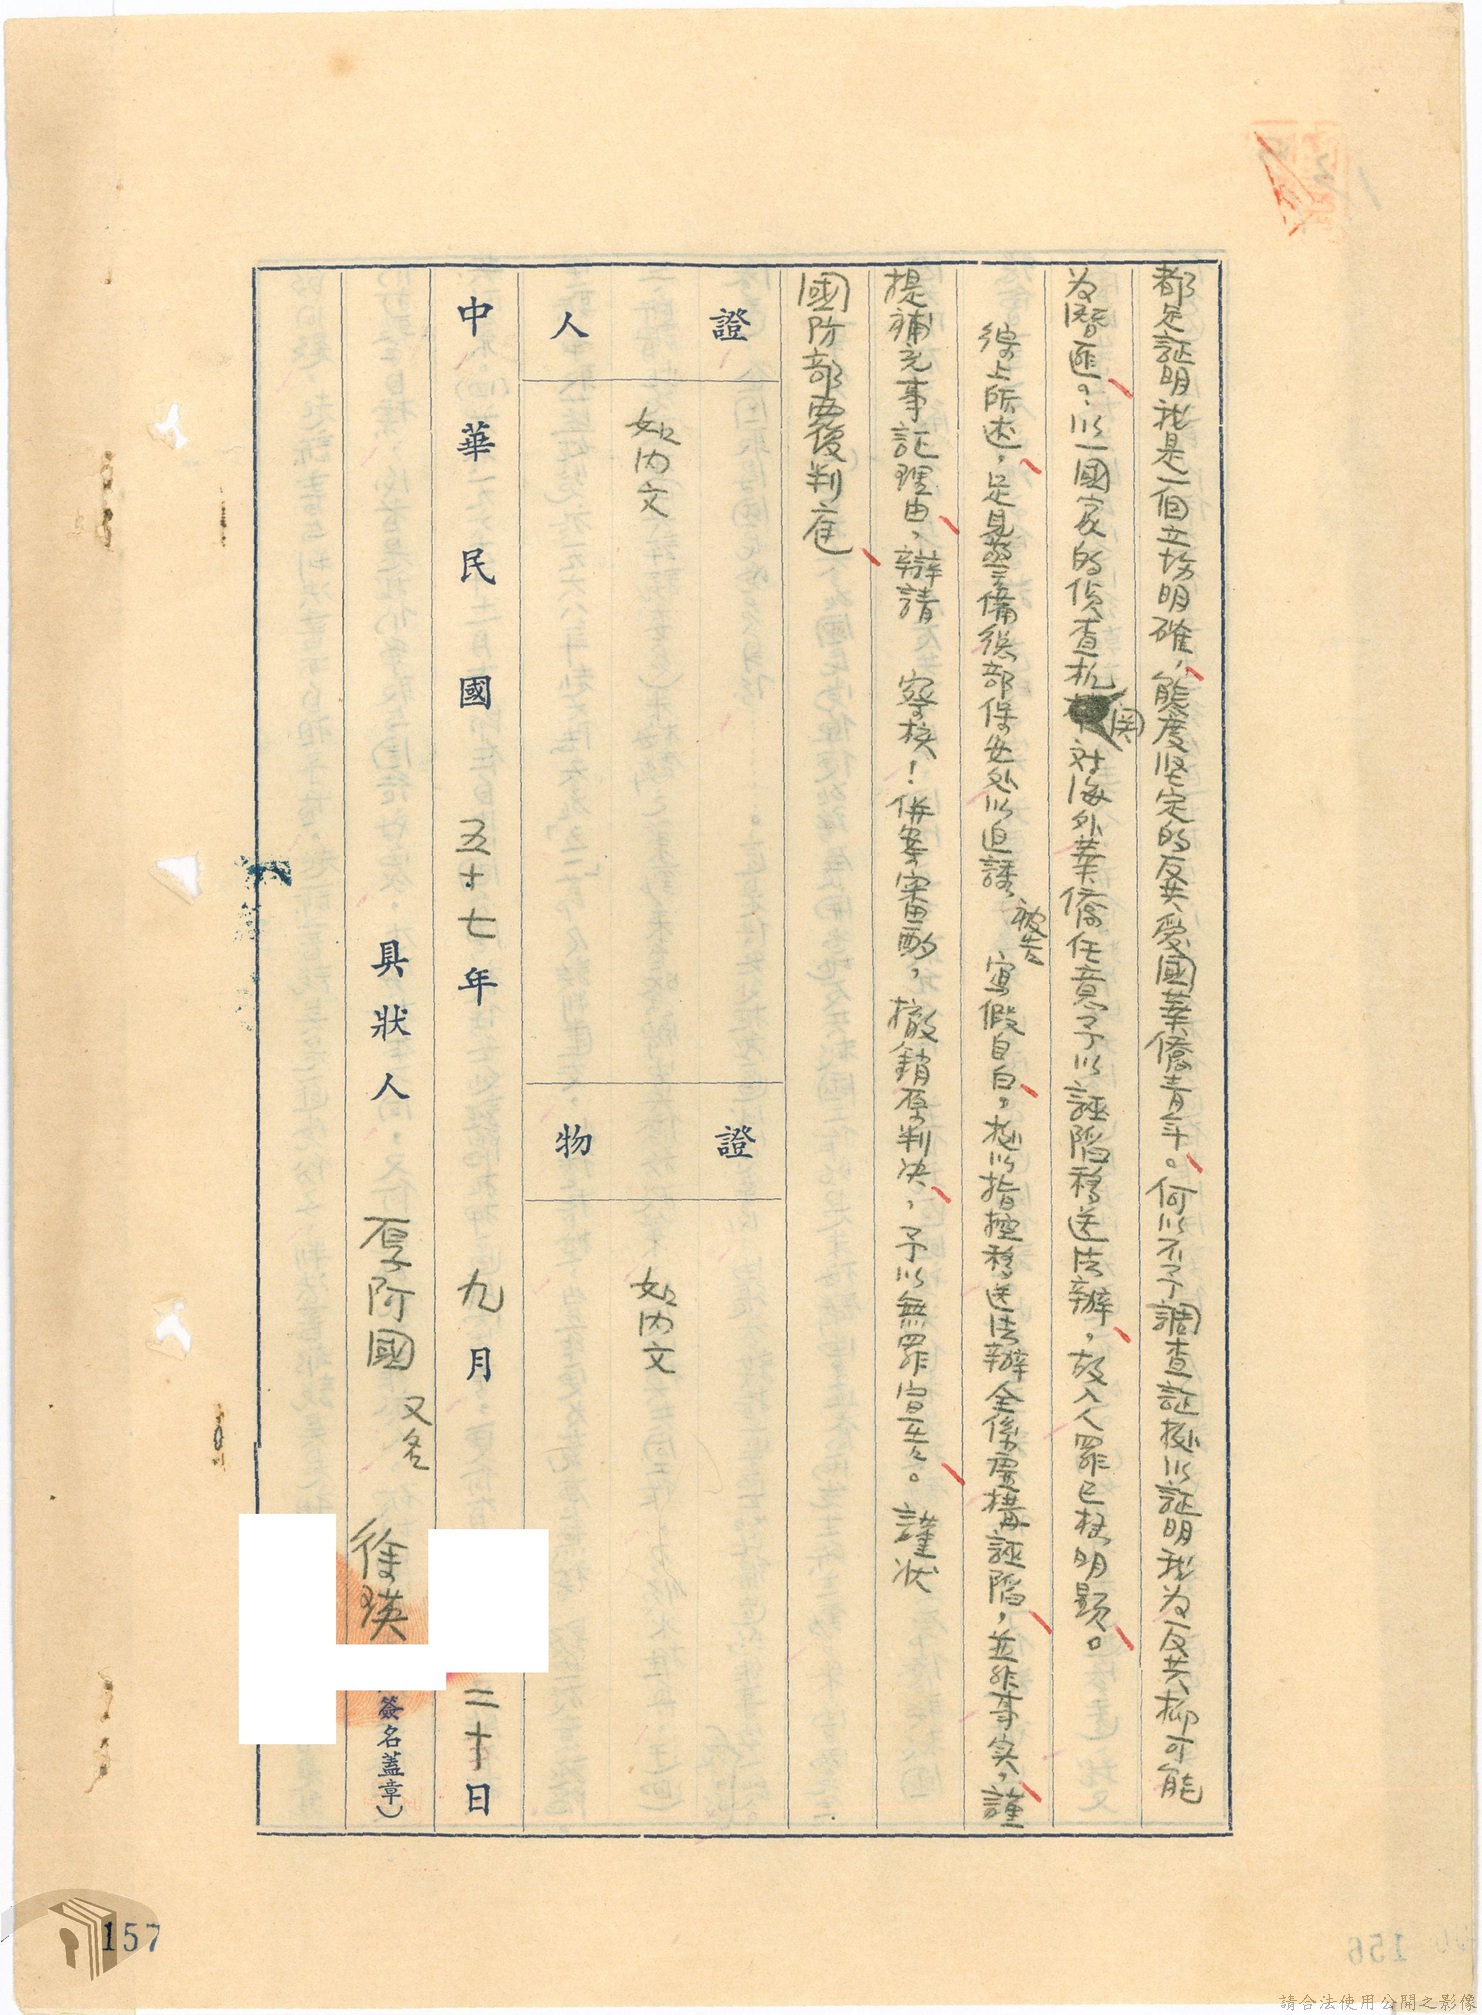 都足証明我是一個立場明確，態度坚定的反共愛國華僑青年。何以不予調查証據以証明我為反共抑可能
為潛匪？以一國家的偵查机関対海外華僑任意予以誣陷移送法辦，故入人罪已極明顯。
綜上所述，足見警備総部保安処以迫誘被告寫假自白，拠以指控移送法辦全係虛構誣陷，並非事実，謹
提補充事証理由，辯請　察核！併案審酌，撤銷原判决，予以無罪宣告。謹狀
國防部覆判庭
證人
如內文
證物
如內文
中華民國五十七年九月二十日
具狀人　厚阿國　又名　徐瑛　簽名蓋章）
157
156
請合法使用公開之影像